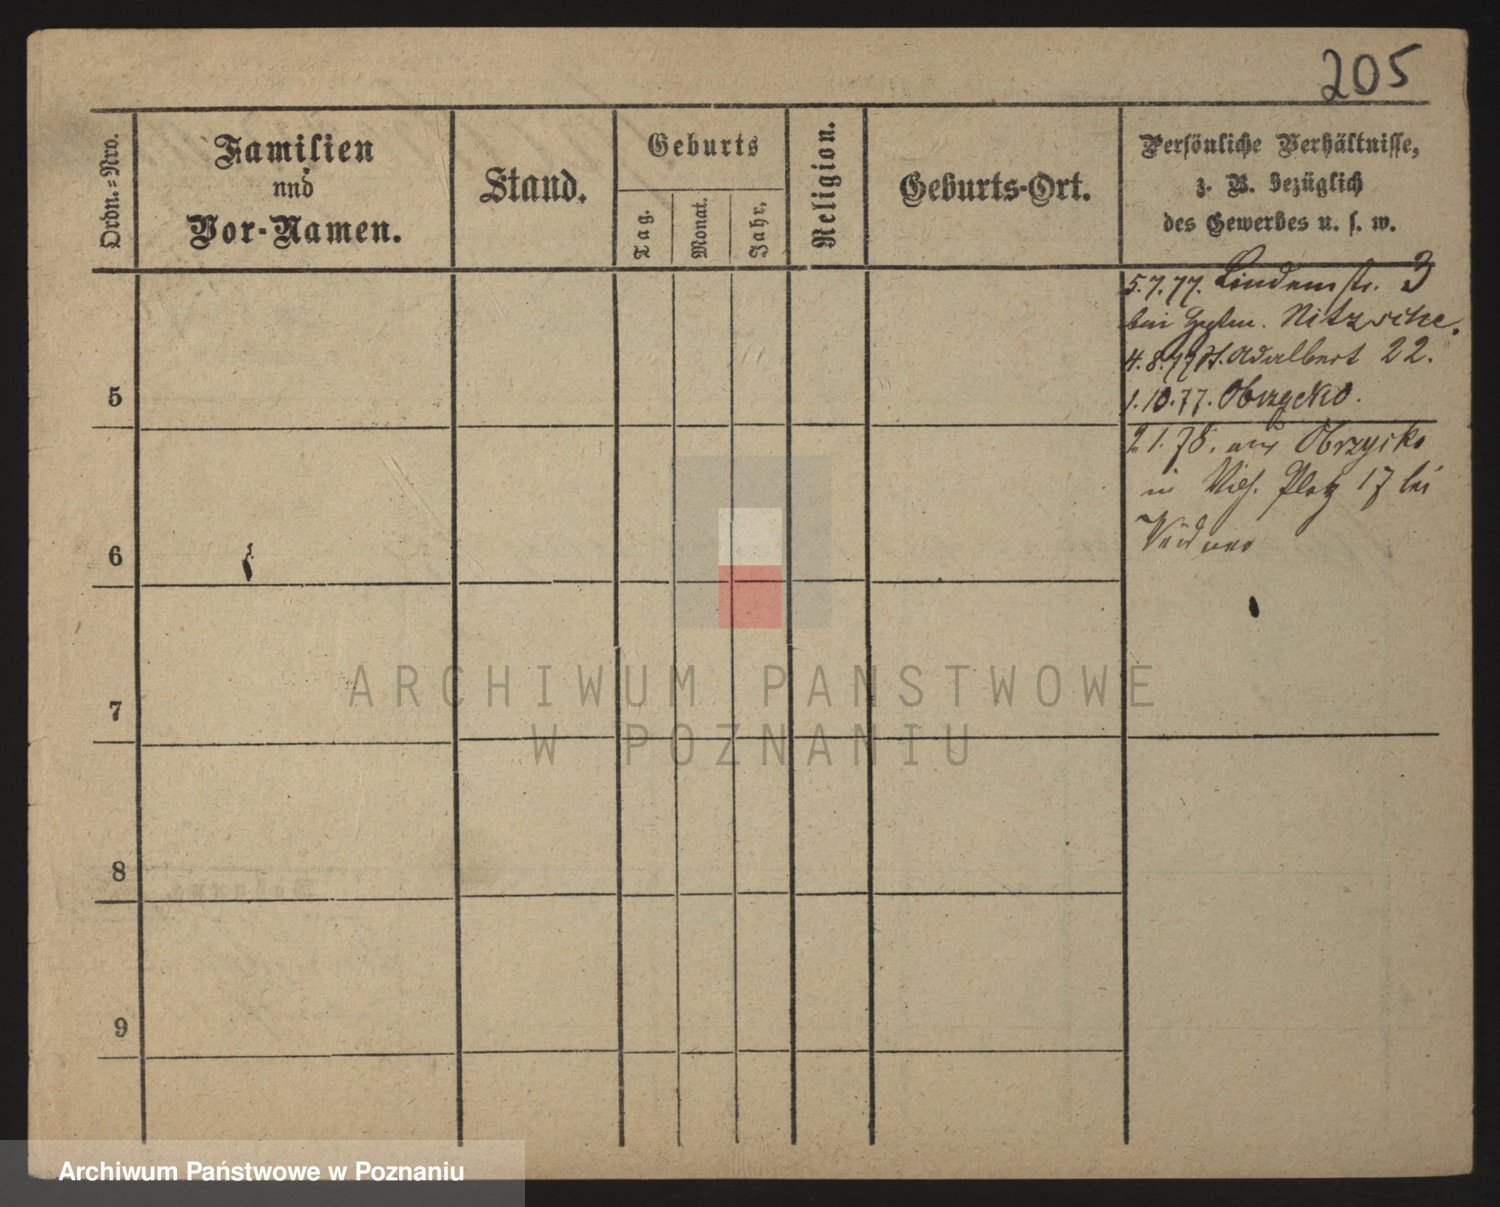 205
Ordn.=Nro.
Familien
nnd
Vor-Namen.
Stand.
Geburts
Tag.
Monat.
Jahr.
Religion.
Geburts-Ort.
Persönliche Verhältnisse,
z. B. bezüglich
des Gewerbes u. s. w.
5.7.77. Lindenstr. 3
bei Nitzsche.
4.8.77 St. Adalbert 22.
1.10.77. Obrzycko.
2 1.78. aus Obrzycko
in Wilh. Platz 17 bei
5
6
7
8
9
ARCHIWUM PAŃSTWOWE
W POZNANIU
Archiwum Państwowe w Poznaniu